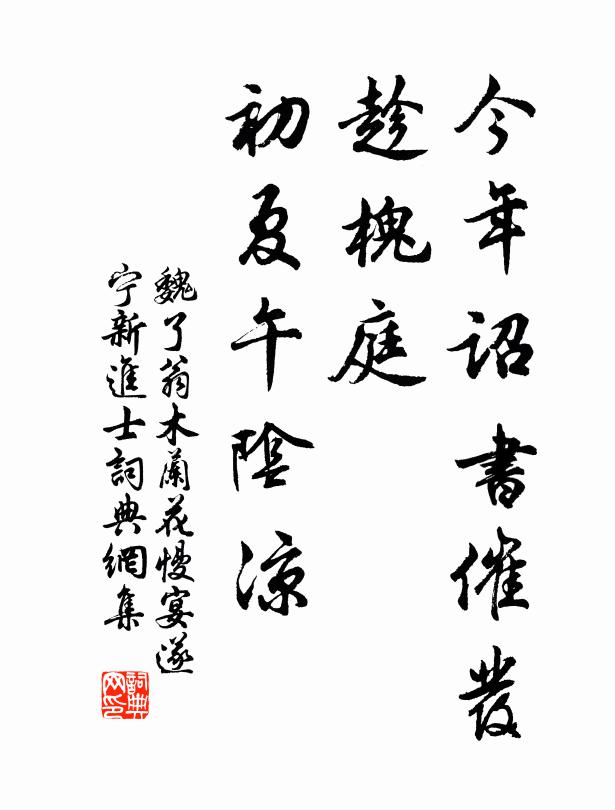 今年詔書催發
趁槐庭
初夏午陰涼
魏了翁木蘭花慢宴遂
宁新進士詞典網集
詞典网印